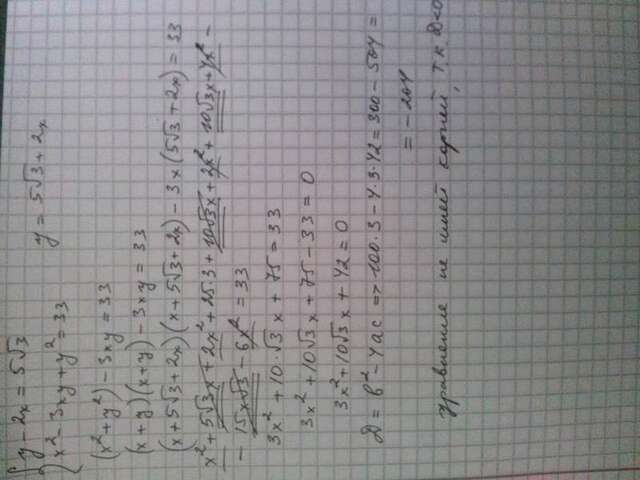 { y - 2x = 5√3 y = 5√3 + 2x
x² - 3xy + y² = 33
(x² + y²) - 3xy = 33
(x + y)(x + y) - 3xy = 33
(x + 5√3 + 2x)(x + 5√3 + 2x) - 3x(5√3 + 2x) = 33
x² + 5√3x + 2x² + 25·3 + 10√3x + 2x² + 10√3x + 4x² -
- 15x√3 - 6x² = 33
3x² + 10·√3x + 75 = 33
3x² + 10√3x + 75 - 33 = 0
3x² + 10√3x + 42 = 0
D = b² - 4ac => 100·3 - 4·3·42 = 300 - 504 =
= -204
Уравнение не имеет корней, т.к D<0